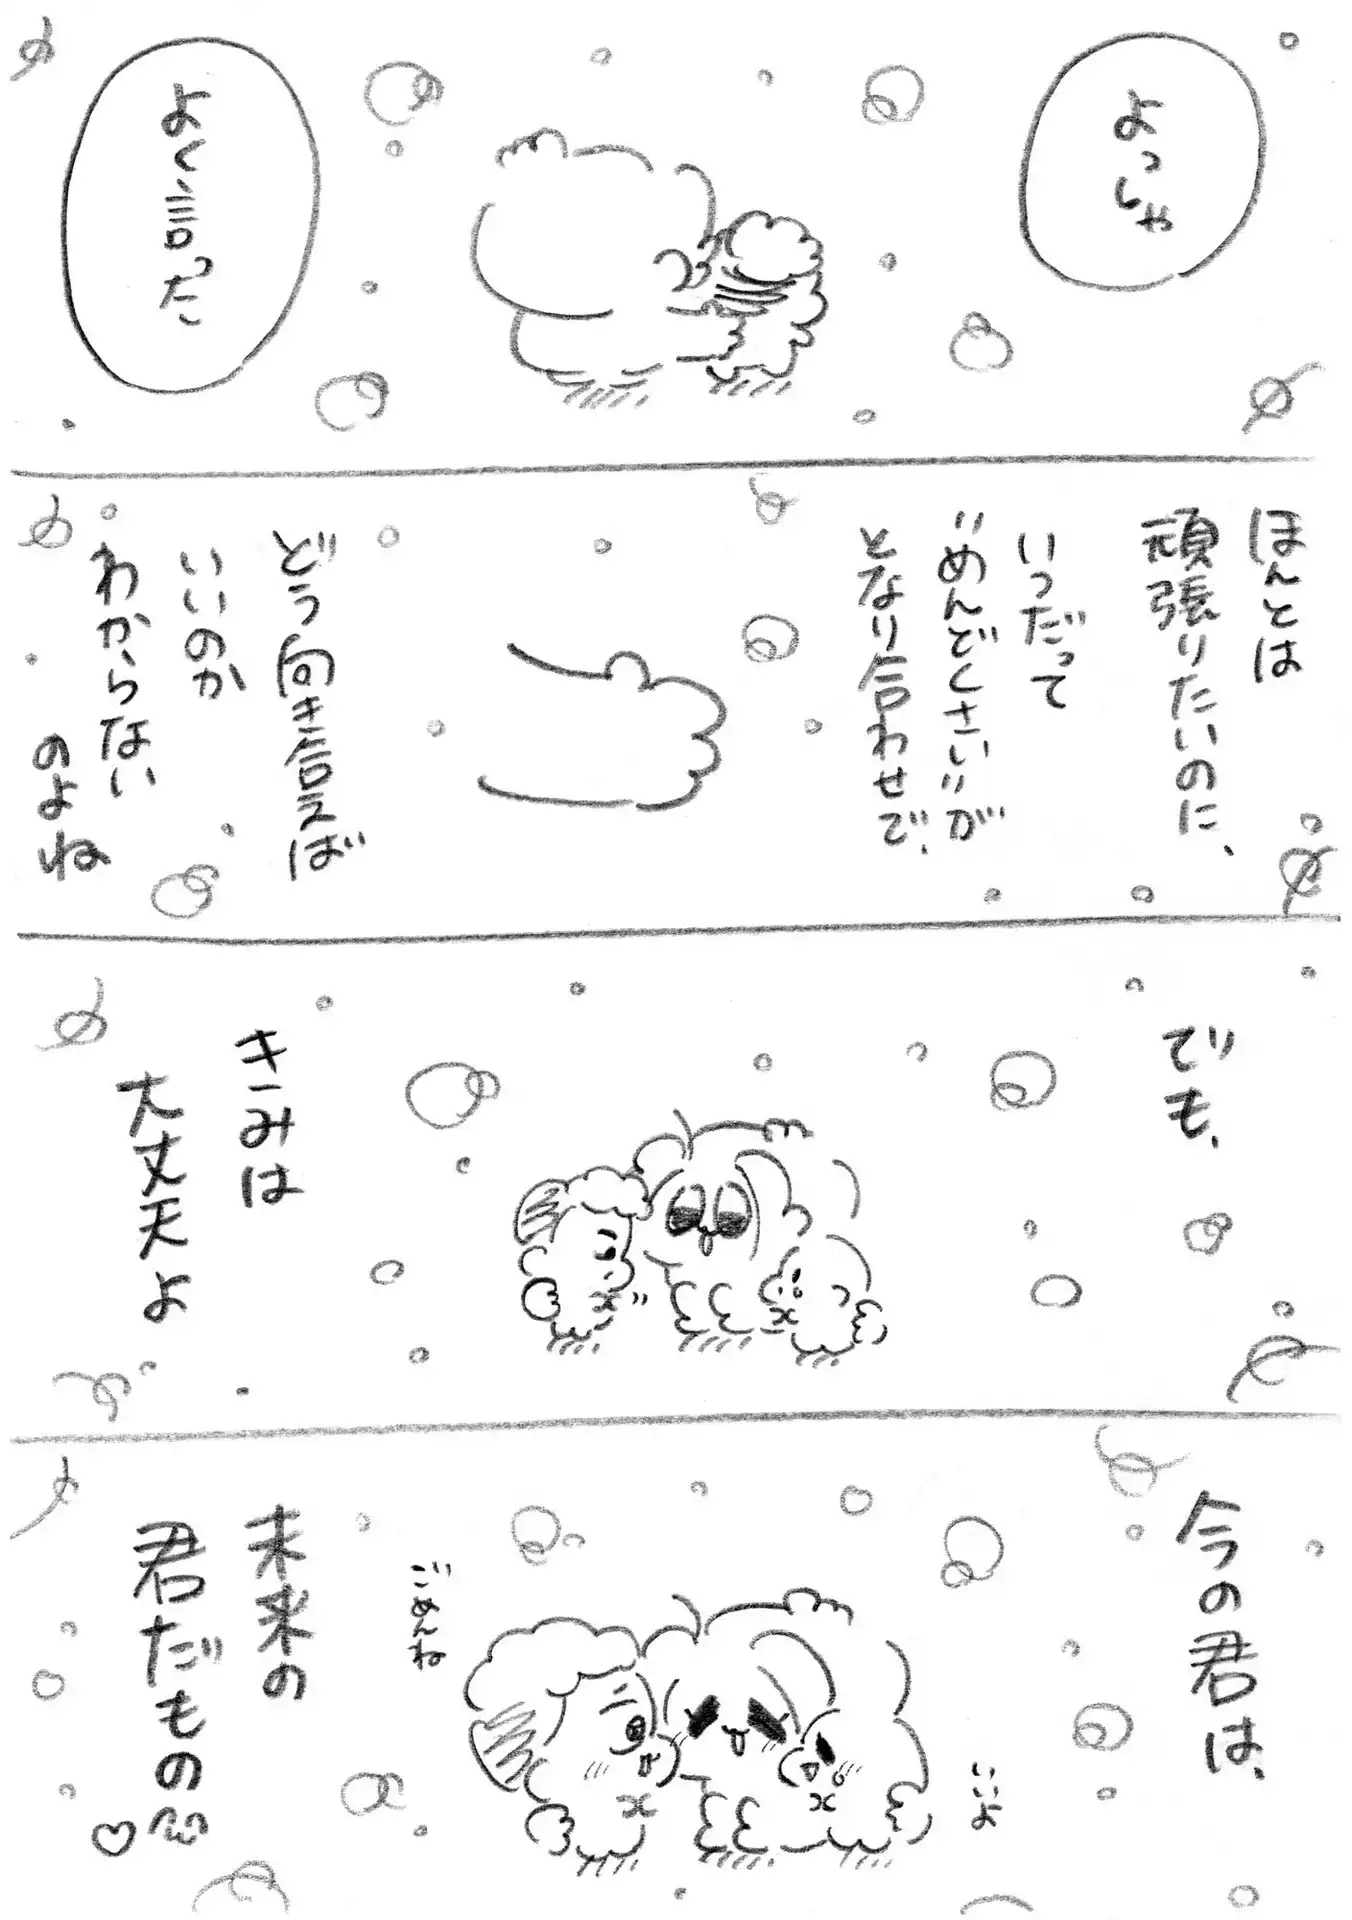 よっしゃ
よく言った
ほんとは
頑張りたいのに、
いつだって
"めんどくさい"が
となり合わせで、
どう向き合えば
いいのか
わからない
のよね
でも、
きみは
大丈夫よ
今の君は、
いいよ
ごめんね
未来の
君だもの♡